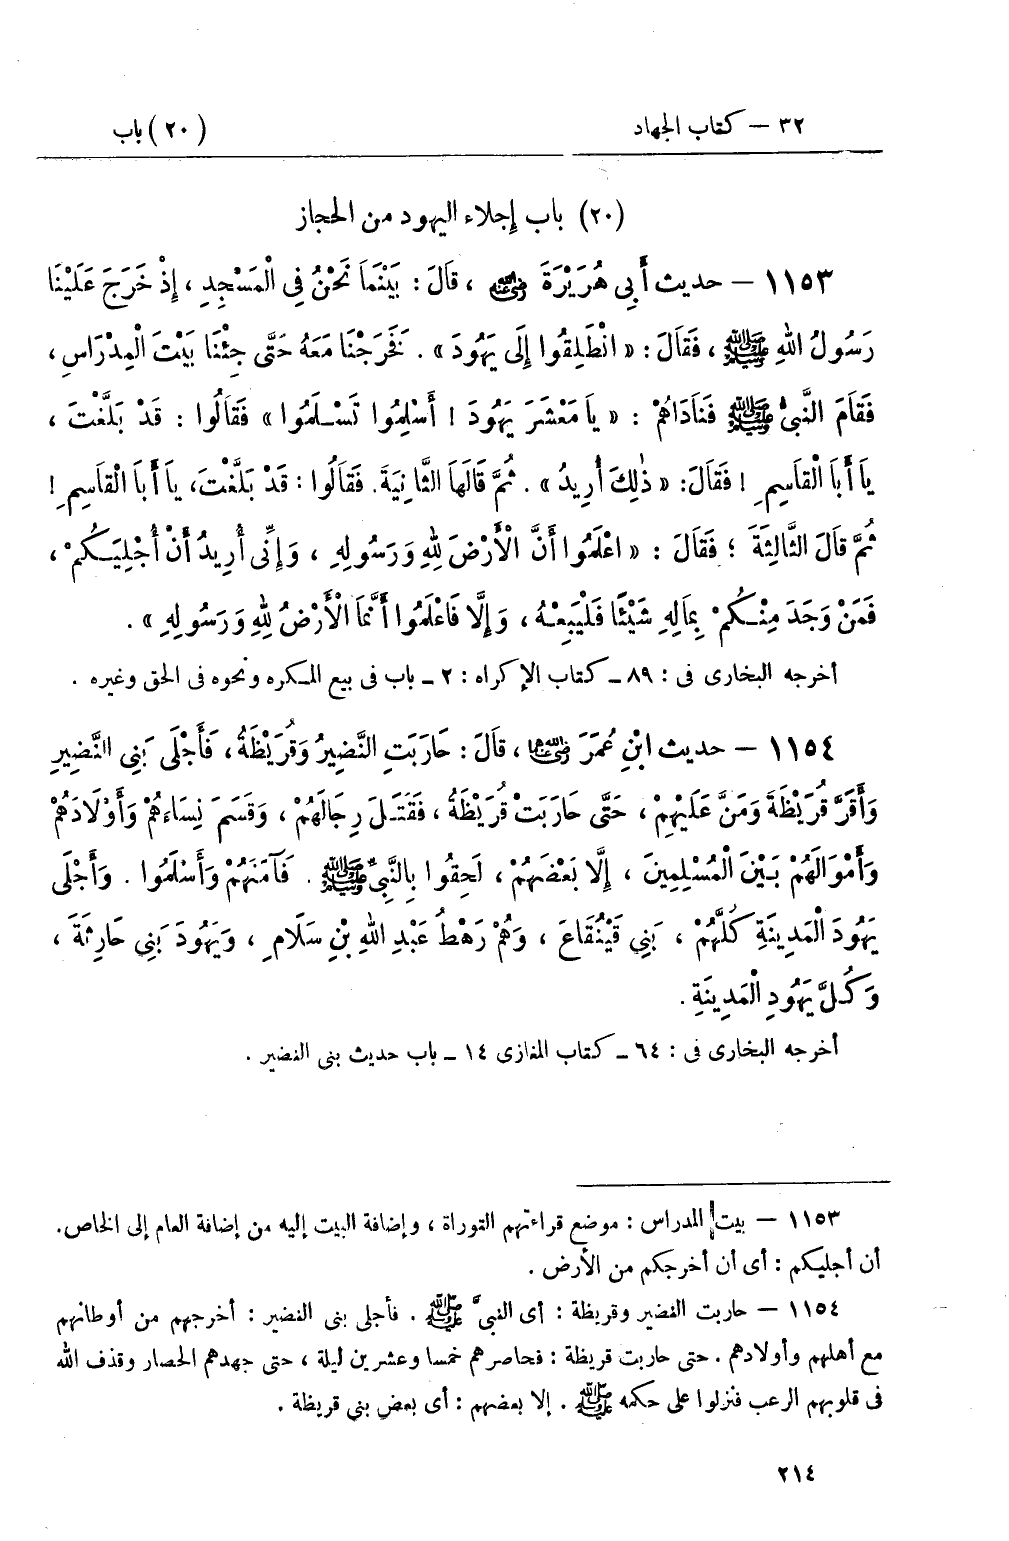 ٣٢ – كتاب الجهاد (٢٠) باب
(٢٠) باب إجلاء اليهود من الحجاز
١١٥٣ – حديث أَبِي هُرَيْرَةَ رضي الله عنه ، قَالَ : بَيْنَمَا نَحْنُ فِي الْمَسْجِدِ ، إِذْ خَرَجَ عَلَيْنَا
رَسُولُ اللهِ ﷺ ، فَقَالَ : « انْطَلِقُوا إِلَى يَهُودَ » . فَخَرَجْنَا مَعَهُ حَتَّى جِئْنَا بَيْتَ الْمِدْرَاسِ ،
فَقَامَ النَّبِيُّ ﷺ فَنَادَاهُمْ : « يَا مَعْشَرَ يَهُودَ ! أَسْلِمُوا تَسْلَمُوا » فَقَالُوا : قَدْ بَلَّغْتَ ،
يَا أَبَا الْقَاسِمِ ! فَقَالَ : « ذٰلِكَ أُرِيدُ » . ثُمَّ قَالَهَا الثَّانِيَةَ . فَقَالُوا : قَدْ بَلَّغْتَ، يَا أَبَا الْقَاسِمِ !
ثُمَّ قَالَ الثَّالِثَةَ ؛ فَقَالَ : « اعْلَمُوا أَنَّ الْأَرْضَ لِلهِ وَرَسُولِهِ ، وَإِنِّى أُرِيدُ أَنْ أُجْلِيَكُمْ ،
فَمَنْ وَجَدَ مِنْكُمْ بِمَالِهِ شَيْئًا فَلْيَبِعْهُ ، وَإِلَّا فَاعْلَمُوا أَنَّمَا الْأَرْضُ لِلهِ وَرَسُولِهِ » .
أخرجه البخارى فى : ٨٩ ـ كتاب الإكراه : ٢ ـ باب فى بيع المكره ونحوه فى الحق وغيره .
١١٥٤ – حديث ابْنِ عُمَرَ رضي الله عنهما ، قَالَ : حَارَبَتِ النَّضِيرُ وَقُرَيْظَةُ ، فَأَجْلَى بَنِي النَّضِيرِ
وَأَقَرَّ قُرَيْظَةَ وَمَنَّ عَلَيْهِمْ ، حَتَّى حَارَبَتْ قُرَيْظَةُ ، فَقَتَلَ رِجَالَهُمْ ، وَقَسَمَ نِسَاءَهُمْ وَأَوْلَادَهُمْ
وَأَمْوَالَهُمْ بَيْنَ الْمُسْلِمِينَ ، إِلَّا بَعْضَهُمْ ، لَحِقُوا بِالنَّبِيِّ ﷺ . فَآمَنَهُمْ وَأَسْلَمُوا . وَأَجْلَى
يَهُودَ الْمَدِينَةِ كُلَّهُمْ ، بَنِي قَيْنُقَاعَ ، وَهُمْ رَهْطُ عَبْدِ اللهِ بْنِ سَلَامٍ ، وَيَهُودَ بَنِي حَارِثَةَ ،
وَكُلَّ يَهُودِ الْمَدِينَةِ .
أخرجه البخارى فى : ٦٤ ـ كتاب المغازى ١٤ ـ باب حديث بنى النضير .
١١٥٣ – بيت المدراس : موضع قراءتهم التوراة ، وإضافة البيت إليه من إضافة العام إلى الخاص.
أن أجليكم : أى أن أخرجكم من الأرض .
١١٥٤ – حاربت النضير وقريظة : أى النبىَّ ﷺ . فأجلى بنى النضير : أخرجهم من أوطانهم
مع أهلهم وأولادهم . حتى حاربت قريظة : فحاصرهم خمسا وعشرين ليلة ، حتى جهدهم الحصار وقذف الله
فى قلوبهم الرعب فنزلوا على حكمه ﷺ . إلا بعضهم : أى بعض بني قريظة .
٢١٤